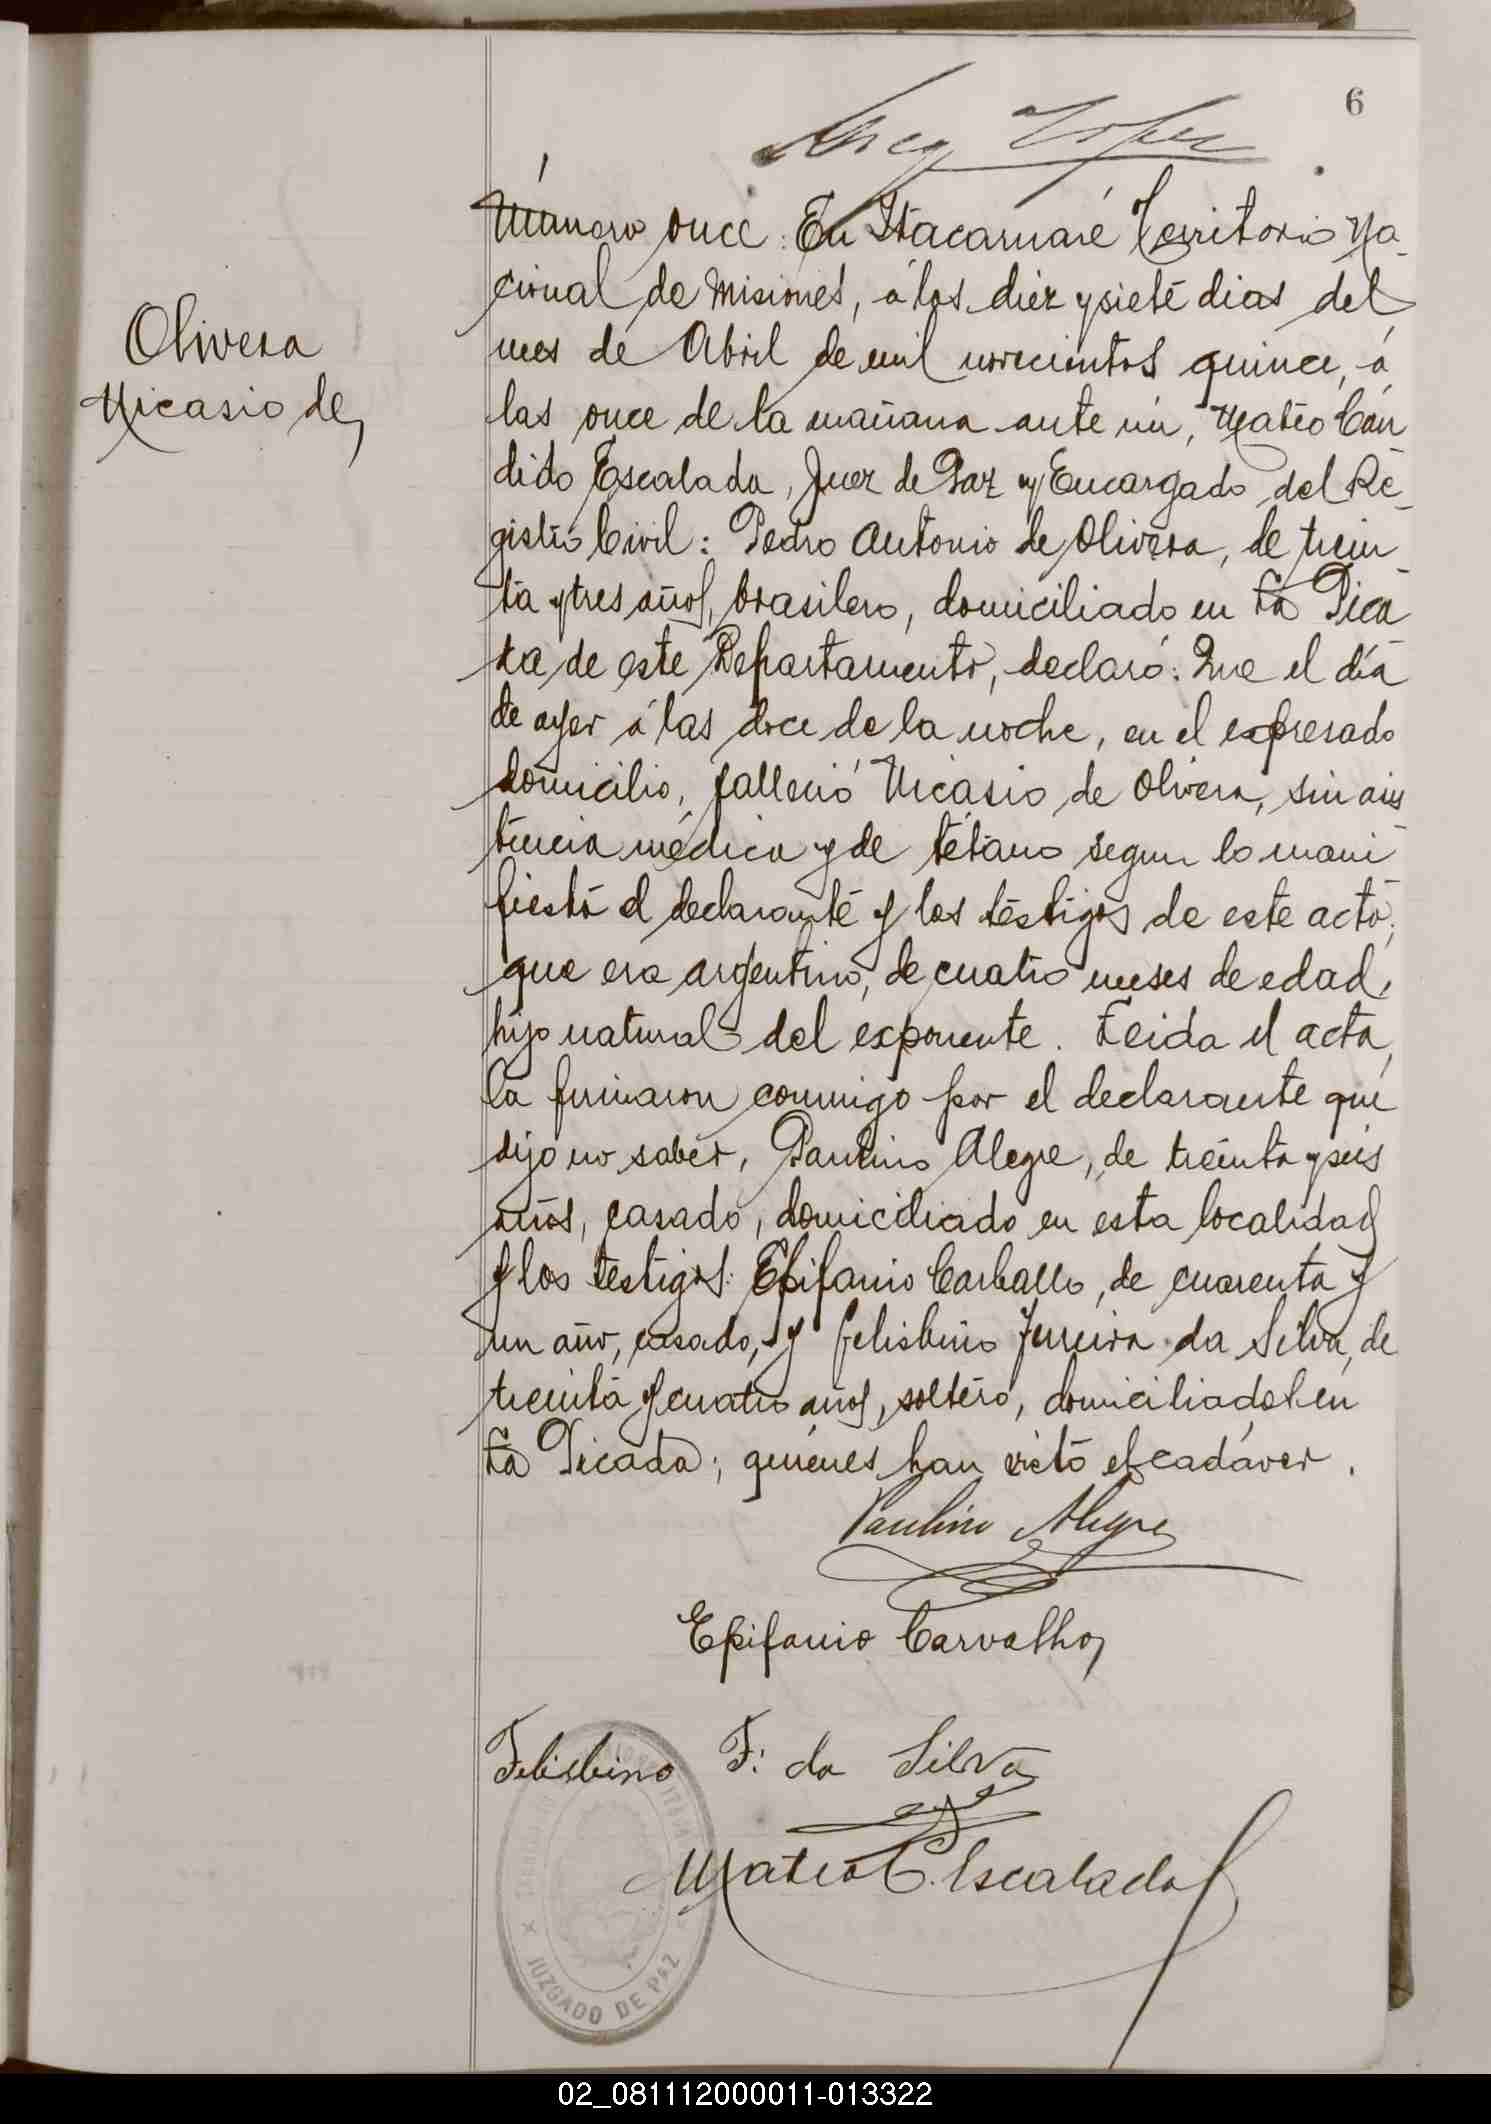 6
Olivera
Nicasio de
Número once: En Itacaruaré Territorio Na-
cional de Misiones, á los diez y siete dias del
mes de Abril de mil novecientos quince, á
las once de la mañana ante mi, Mateo Cán
dido Escalada, Juez de Paz y Encargado del Re-
gistro Civil: Pedro Antonio de Olivera, de trein
ta y tres años, brasilero, domiciliado en La Pica
da de este Departamento, declaró: Que el día
de ayer á las doce de la noche, en el expresado
domicilio, falleció Nicasio de Olivera, sin asis
tencia médica y de tétano segun lo mani
fiesta el declarante y los testigos de este acto;
que era argentino, de cuatro meses de edad,
hijo natural del exponente. Leida el acta,
la firmaron conmigo por el declarante que
dijo no saber, Paulino Alegre, de treinta y seis
años, casado, domiciliado en esta localidad
y los testigos: Epifanio Carballo, de cuarenta y
un año, casado, y Felisbino Ferreira da Silva, de
treinta y cuatro años, soltero, domiciliados en
La Picada; quienes han visto el cadáver.
Paulino Alegre
Epifanio Carvalho
Felisbino F. da Silva
Mateo C. Escalada
JUZGADO DE PAZ
02_081112000011-013322